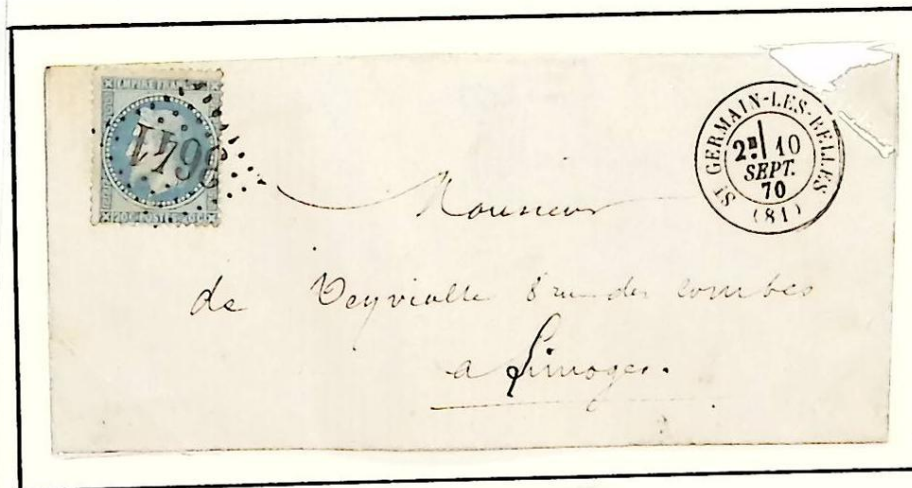 EMPIRE FRANC
3641
20C POSTES 20C
ST GERMAIN-LES-BELLES
2E 10
SEPT.
70
(81)
Monsieur
de Veyvialle 8 rue des combes
a Limoges.